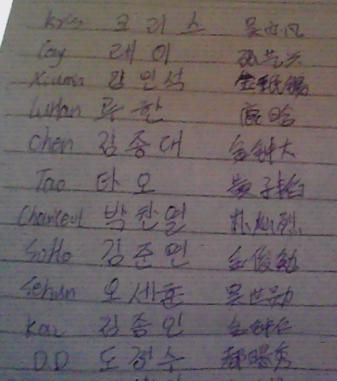 Kris 크리스 吴亦凡
Lay 레이
Xiumin 김민석 金珉锡
Luhan 루한 鹿晗
Chen 김종대 金钟大
Tao 타오 黄子韬
Chanyeol 박찬열 朴灿烈
SuHo 김준면 金俊勉
Sehun 오세훈 吴世勋
Kai 김종인 金钟仁
D.O 도경수